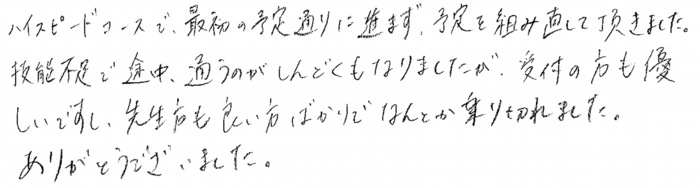 ハイスピードコースで、最初の予定通りに進まず、予定を組み直して頂きました。
技能不足で途中、通うのがしんどくもなりましたが、受付の方も優
しいですし、先生方も良い方ばかりでなんとか乗り切れました。
ありがとうございました。